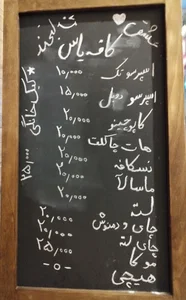 عشقت
بخند
کافه یاس
اسپرسو تک ۱۰,۰۰۰
اسپرسو دوبل ۱۵,۰۰۰
کاپوچینو ۲۰,۰۰۰
هات چاکلت ۲۰,۰۰۰
نسکافه ۲۰,۰۰۰
ماسالا ۲۰,۰۰۰
لته ۲۰,۰۰۰
چای و دمنوش ۲۰,۰۰۰
چای لته ۲۰,۰۰۰
موکا ۲۵,۰۰۰
هیچی -۰-
*کیک خانگی ۲۵,۰۰۰